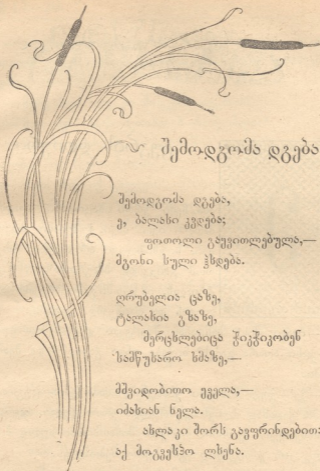 შემოდგომა დგება
შემოდგომა დგება,
ე, ბალახი კვდება;
ფოთოლი გაყვითლებულა,—
მგონი სული ჰხდება.
ღრუბელია ცაზე,
ტალახია გზაზე,
მერცხლებიცა ჭიკჭიკობენ
სამწუხარო ხმაზე,—
მშვიდობითო ყველა,—
იძახიან ნელა.
ახლა კი შორს გავფრინდებით:
აქ მოგვეხპო ლხენა.